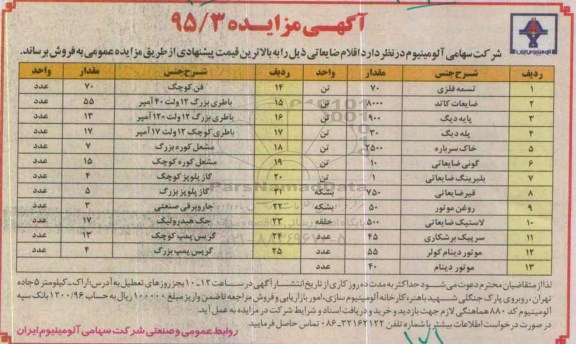 آگهی مزایده ۹۵/۳
شرکت سهامی آلومینیوم در نظر دارد اقلام ضایعاتی ذیل را به بالاترین قیمت پیشنهادی از طریق مزایده عمومی به فروش برساند.
ردیف شرح جنس مقدار واحد ردیف شرح جنس مقدار واحد
۱ تسمه فلزی ۷۰ تن ۱۴ فن کوچک ۷۰ عدد
۲ ضایعات کاتد ۸۰۰۰ تن ۱۵ باطری بزرگ ۱۲ ولت ۴۰ آمپر ۵۵ عدد
۳ پایه دیگ ۹۰۰ تن ۱۶ باطری بزرگ ۱۲ ولت ۱۲۰ آمپر ۱۳ عدد
۴ پله دیگ ۳۰ تن ۱۷ باطری کوچک ۱۲ ولت ۱۷ آمپر ۱۷ عدد
۵ خاک سرباره ۲۵۰۰ تن ۱۸ مشعل کوره بزرگ ۷ عدد
۶ گونی ضایعاتی ۱۰ تن ۱۹ مشعل کوره کوچک ۱۵ عدد
۷ بلبرینگ ضایعاتی ۱ تن ۲۰ گاز پلویز کوچک ۴ عدد
۸ قیر ضایعاتی ۷۵۰ بشکه گاز پلویز بزرگ ۵ عدد
۹ روغن موتور ۵۰ بشکه ۲۲ جاروبرقی صنعتی ۳ عدد
۱۰ لاستیک ضایعاتی ۵۰۰ حلقه ۲۳ جک هیدرولیک ۱۷ عدد
۱۱ سرپیک برشکاری ۴۵ عدد ۲۴ گریس پمپ کوچک ۱۳ عدد
۱۲ موتور دینام کولر ۵۵ عدد ۲۵ گریس پمپ بزرگ ۴ عدد
۱۳ موتور دینام ۴۰ عدد
ParsNamadData
لذا از متقاضیان محترم دعوت می شود حداکثر به مدت ده روز کاری از تاریخ انتشار آگهی در ساعت ۱۲-۱۰ بجز روزهای تعطیل به آدرس: اراک-کیلومتر ۵ جاده
تهران، روبروی پارک جنگلی شهید باهنر، کارخانه آلومینیوم سازی، امور بازاریابی و فروش مراجعه تا ضمن واریز مبلغ ۱۰۰۰۰۰ ریال به حساب ۱۲۰۰/۹۶ بانک سپه
آلومینیوم کد ۸۸۰ هماهنگی لازم جهت بازدید و خرید و دریافت اسناد و شرایط شرکت در مزایده به عمل آید.
در صورت درخواست اطلاعات بیشتر با شماره تلفن ۳۲۱۶۲۱۲۲-۰۸۶ تماس حاصل فرمایید.
روابط عمومی و صنعتی شرکت سهامی آلومینیوم ایران